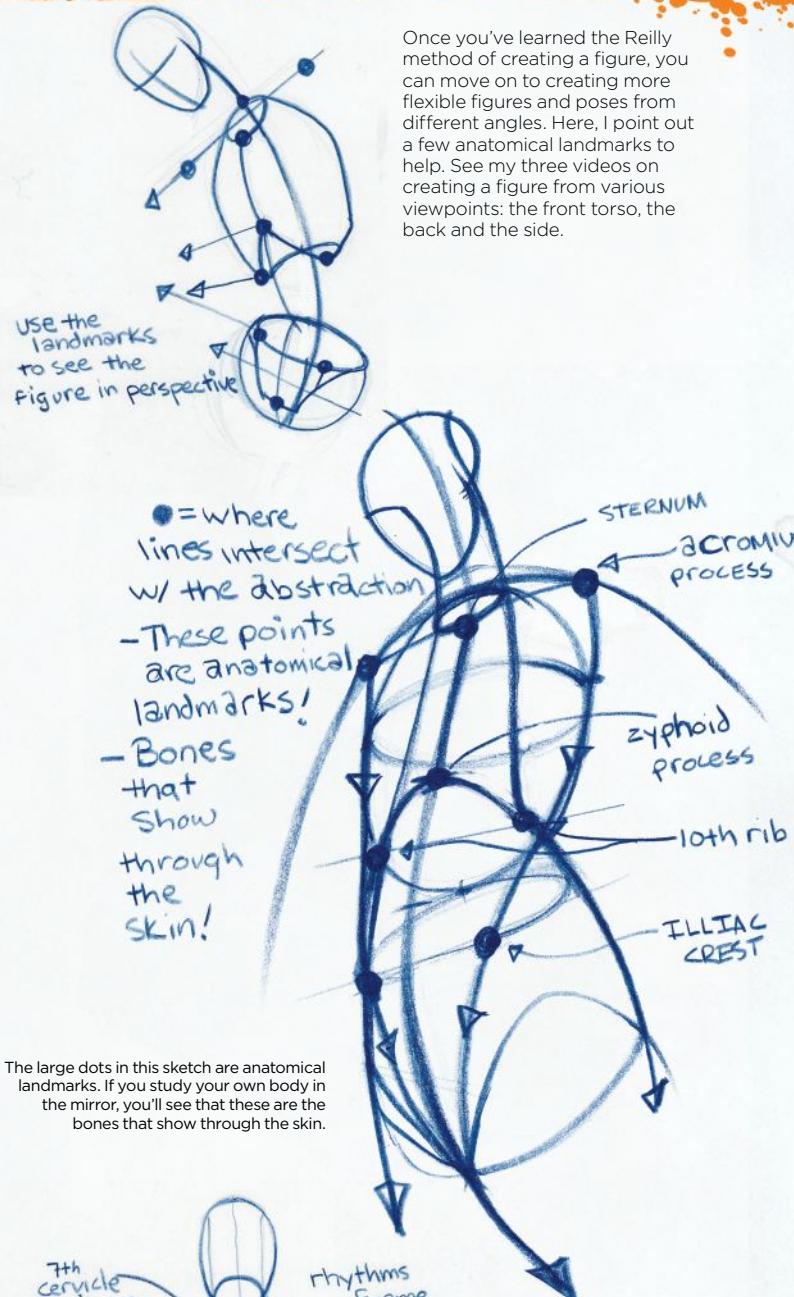 Once you've learned the Reilly
method of creating a figure, you
can move on to creating more
flexible figures and poses from
different angles. Here, I point out
a few anatomical landmarks to
help. See my three videos on
creating a figure from various
viewpoints: the front torso, the
back and the side.
use the
landmarks
to see the
figure in perspective
= where
lines intersect
w/ the abstraction
- These points
are anatomical
landmarks!
- Bones
that
Show
through
the
skin!
STERNUM
acromiu
process
zyphoid
process
10th rib
ILLIAC
CREST
The large dots in this sketch are anatomical
landmarks. If you study your own body in
the mirror, you'll see that these are the
bones that show through the skin.
7th
cervicle
rhythms